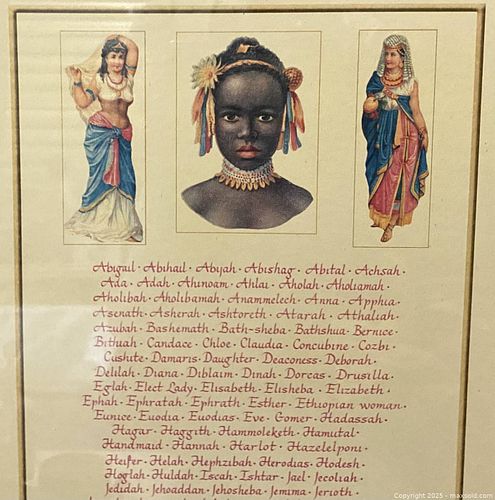 Abigail · Abihail · Abijah · Abishag · Abital · Achsah ·
Ada · Adah · Ahinoam · Ahlai · Aholah · Aholiamah ·
Aholibah · Aholibamah · Anammelech · Anna · Apphia ·
Asenath · Asherah · Ashtoreth · Atarah · Athaliah ·
Azubah · Bashemath · Bath-sheba · Bathshua · Bernice ·
Bithiah · Candace · Chloe · Claudia · Concubine · Cozbi ·
Cushite · Damaris · Daughter · Deaconess · Deborah ·
Delilah · Diana · Diblaim · Dinah · Dorcas · Drusilla ·
Eglah · Elect Lady · Elisabeth · Elisheba · Elizabeth ·
Ephah · Ephratah · Ephrath · Esther · Ethiopian woman ·
Eunice · Euodia · Euodias · Eve · Gomer · Hadassah ·
Hagar · Haggith · Hammoleketh · Hamutal ·
Handmaid · Hannah · Harlot · Hazelelponi ·
Heifer · Helah · Hephzibah · Herodias · Hodesh ·
Hoglah · Huldah · Iscah · Ishtar · Jael · Jecoliah ·
Jedidah · Jehoaddan · Jehosheba · Jemima · Jerioth ·
Copyright 2025 - maxsold.com